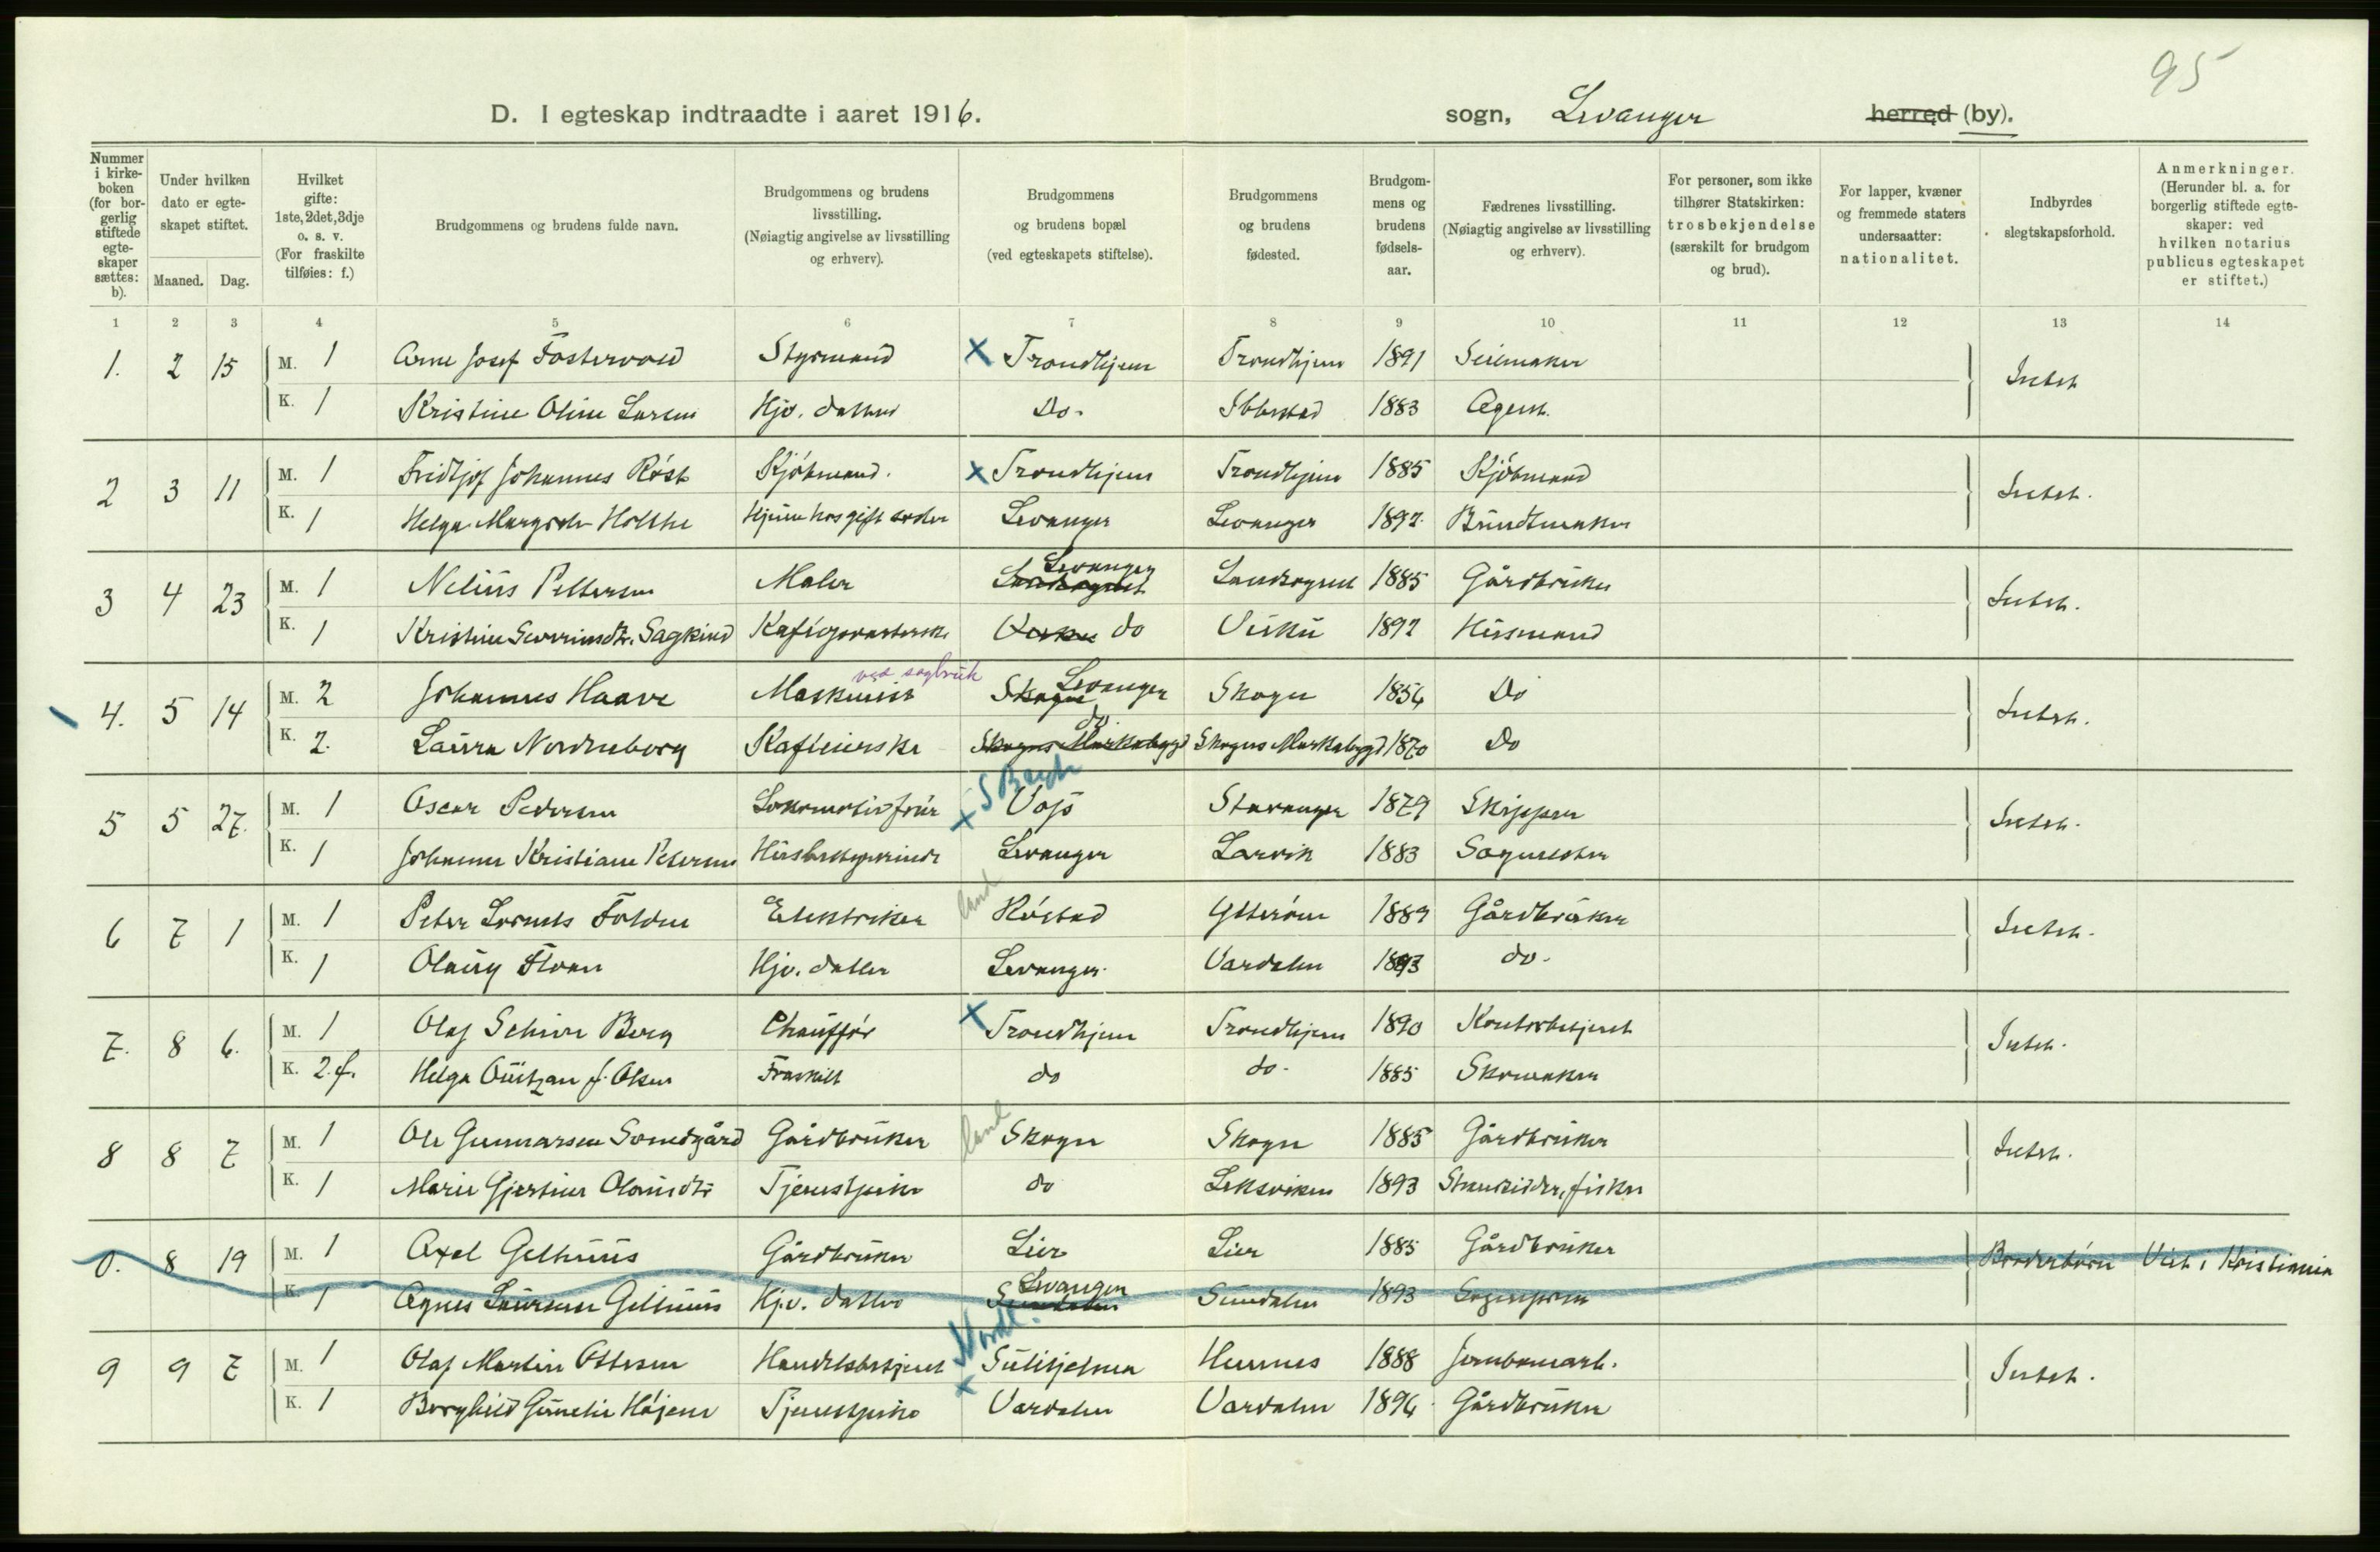 95
D. I egteskap indtraadte i aaret 1916.
sogn, Levanger herred (by).
Nummer i kirkeboken (for borgerlig stiftede egteskaper sættes: b).
Under hvilken dato er egteskapet stiftet.
Maaned. Dag.
Hvilket gifte: 1ste, 2det, 3dje o. s. v. (For fraskilte tilføies: f.)
Brudgommens og brudens fulde navn.
Brudgommens og brudens livsstilling. (Nøiagtig angivelse av livsstilling og erhverv).
Brudgommens og brudens bopæl (ved egteskapets stiftelse).
Brudgommens og brudens fødested.
Brudgommens og brudens fødselsaar.
Fædrenes livsstilling. (Nøiagtig angivelse av livsstilling og erhverv).
For personer, som ikke tilhører Statskirken: trosbekjendelse (særskilt for brudgom og brud).
For lapper, kvæner og fremmede staters undersaatter: nationalitet.
Indbyrdes slegtskapsforhold.
Anmerkninger. (Herunder bl. a. for borgerlig stiftede egteskaper: ved hvilken notarius publicus egteskapet er stiftet.)
1 2 3 4 5 6 7 8 9 10 11 12 13 14
1. 2 15 M. 1 Arne Josef Fostervold Styrmand X Trondhjem Trondhjem 1891 Seilmaker Intet
K. 1 Kristine Oline Larsen Hjv. datter Do. Ibbestad 1883 Agent.
2 3 11 M. 1 Fridtjof Johannes Røst Kjøbmand. X Trondhjem Trondhjem 1885 Kjøbmand Intet.
K. 1 Helga Margrete Holthe Hjemme hos gift søster Levanger Levanger 1892 Bundtmaker
3 4 23 M. 1 Nelius Pettersen Maler Landsognet Levanger Landsognet 1885 Gårdbruker Intet.
K. 1 Kristine Sevrinsdtr. Sagkind Kaféverterske Verdalen do Vuku 1892 Husmand
ved sagbruk
4. 5 14 M. 2 Johannes Haave Maskinist Skogn Levanger Skogn 1854 Do Intet.
K. 2. Laura Nordenborg Kafeierske Skogns Markabygd do. Skogns Markabygd 1870 Do
5 5 27. M. 1 Oscar Pedersen Lokomotivfører X Vojo Stavanger 1879 Skipper Intet.
K. 1 Johanne Kristiane Petersen Husbestyrerinde Levanger Larvik 1883 Sagmester
6 7 1 M. 1 Peter Lornts Folden Elektriker land Røstad Ytterøen 1889 Gårdbruker Intet.
K. 1 Olaug Floan Hjv. datter Levanger. Værdalen 1893 do.
7. 8 6. M. 1 Olaf Schive Berg Chauffør X Trondhjem Trondhjem 1890 Kontorbetjent Intet.
K. 2. f. f. Olsen Helga Fraskilt do do. 1885 Skomaker
8 8 7 M. 1 Ole Gunnarsen Somdgård Gårdbruker land Skogn Skogn 1885 Gårdbruker Intet.
K. 1 Marie Gjertine Olausdtr Tjenestpike do Leksviken 1893 Strandsidder, fisker
0. 8 19 M. 1 Axel Gilhuus Gårdbruker Lier Lier 1885 Gårdbruker Broderbørn Viet i Kristiania
K. 1 Agnes Laurense Gilhuus Hjv. datter Sundalen Levanger Sundalen 1893 Sogneprest
9 9 7 M. 1 Olaf Martin Ottesen Handelsbetjent X Sulitjelma Hemnes 1888 Jernbanearb. Intet.
K. 1 Borghild Gunelie Højem Tjenestpike Værdalen Værdalen 1894 Gårdbruker